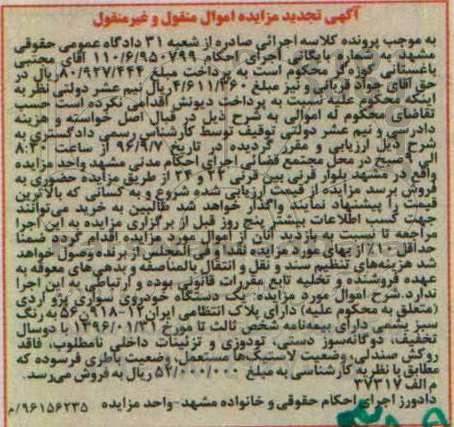 آگهی تجدید مزایده اموال منقول و غیرمنقول
به موجب پرونده کلاسه اجرائی صادره از شعبه ۳۱ دادگاه عمومی حقوقی
مشهد به شماره بایگانی اجرای احکام ۱۱۰/۶/۹۵۰۷۹۹ آقای مجتبی
باغستانی کوزه‌گر محکوم است به پرداخت مبلغ ۸۰/۹۲۷/۴۴۴ ریال در
حق آقای جواد قربانی و نیز مبلغ ۴/۶۱۱/۳۶۰ ریال نیم عشر دولتی نظر به
اینکه محکوم علیه نسبت به پرداخت دیونش اقدامی نکرده است حسب
تقاضای محکوم له اموالی به شرح ذیل در قبال اصل خواسته و هزینه
دادرسی و نیم عشر دولتی توقیف توسط کارشناس رسمی دادگستری به
شرح ذیل ارزیابی و مقرر گردیده در تاریخ ۹۶/۹/۷ از ساعت ۸:۳۰
الی ۹ صبح در محل مجتمع قضائی اجرای احکام مدنی مشهد واحد مزایده
واقع در مشهد بلوار قرنی بین قرنی ۲۲ و ۲۴ از طریق مزایده حضوری به
فروش برسد مزایده از قیمت ارزیابی شده شروع و به کسانی که بالاترین
قیمت را پیشنهاد نمایند واگذار خواهد شد طالبین به خرید می‌توانند
جهت کسب اطلاعات بیشتر پنج روز قبل از برگزاری مزایده به این اجرا
مراجعه تا نسبت به بازدید آنان از اموال مورد مزایده اقدام گردد ضمنا
حداقل ۱۰٪ از بهای مورد مزایده نقدا و فی المجلس از برنده وصول خواهد
شد هزینه‌های تنظیم سند و نقل و انتقال بالمناصفه و بدهی‌های معوقه به
عهده فروشنده و تخلیه تابع مقررات قانونی بوده و ارتباطی به این اجرا
ندارد.شرح اموال مورد مزایده: یک دستگاه خودروی سواری پژو آردی
(متعلق به محکوم علیه) دارای پلاک انتظامی ایران۱۲-۹۱۸ن۵۶ به رنگ
سبز یشمی دارای بیمه‌نامه شخص ثالث تا مورخ ۱۳۹۶/۰۱/۳۱ با دوسال
تخفیف، دوگانه‌سوز دستی، تودوزی و تزئینات داخلی نامطلوب، فاقد
روکش صندلی، وضعیت لاستیک‌ها مستعمل، وضعیت باطری فرسوده که
مطابق با نظریه کارشناسی به مبلغ ۵۲/۰۰۰/۰۰۰ ریال به فروش می‌رسد.
م الف ۳۷۳۱۷
دادورز اجرای احکام حقوقی و خانواده مشهد-واحد مزایده ۹۶۱۵۶۲۳۵/م